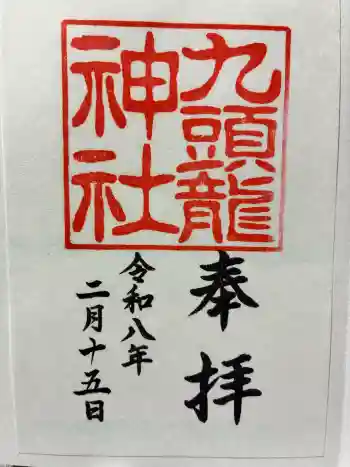 九頭龍
神社
奉拝
令和八年
二月十五日